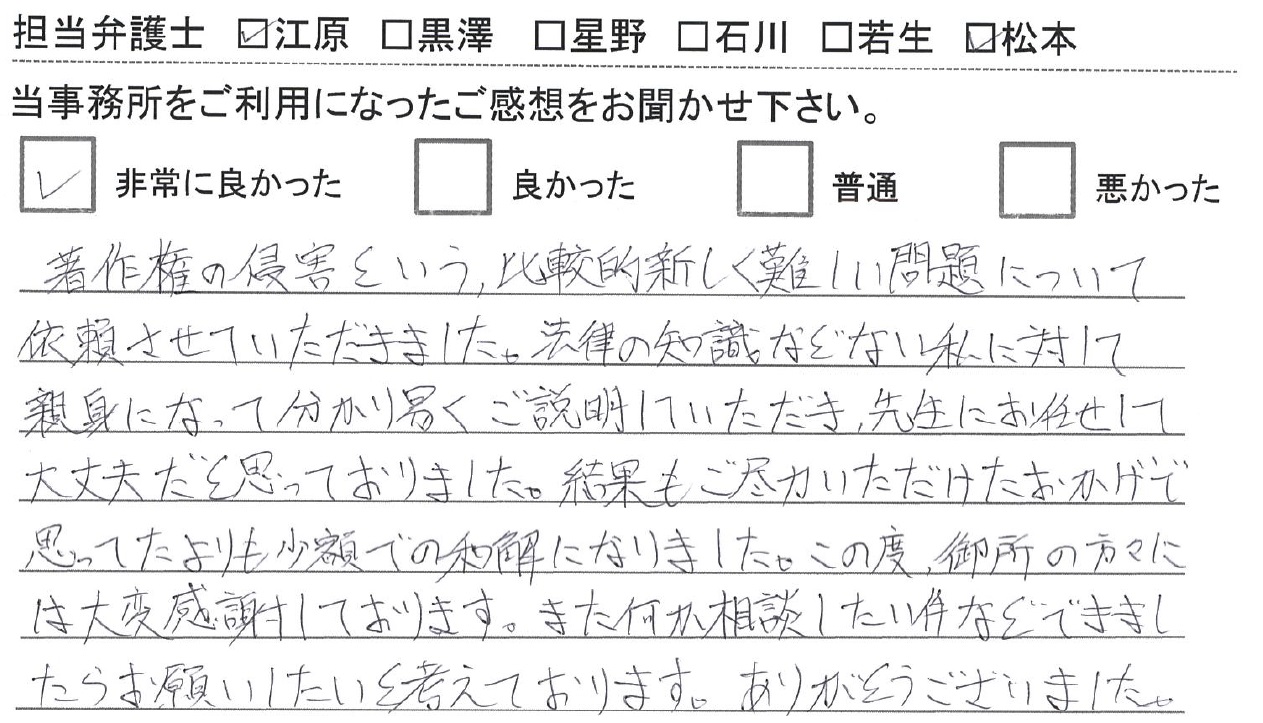 担当弁護士 ☑江原 □黒澤 □星野 □石川 □若生 ☑松本
当事務所をご利用になったご感想をお聞かせ下さい。
☑ 非常に良かった □ 良かった □ 普通 □ 悪かった
著作権の侵害という,比較的新しく難しい問題について
依頼させていただきました。法律の知識などない私に対して
親身になって分かり易くご説明していただき,先生にお任せして
大丈夫だと思っておりました。結果もご尽力いただけたおかげで
思ってたよりも少額での和解になりました。この度,御所の方々に
は大変感謝しております。また何か相談したい件などできまし
たらお願いしたいと考えております。ありがとうございました。